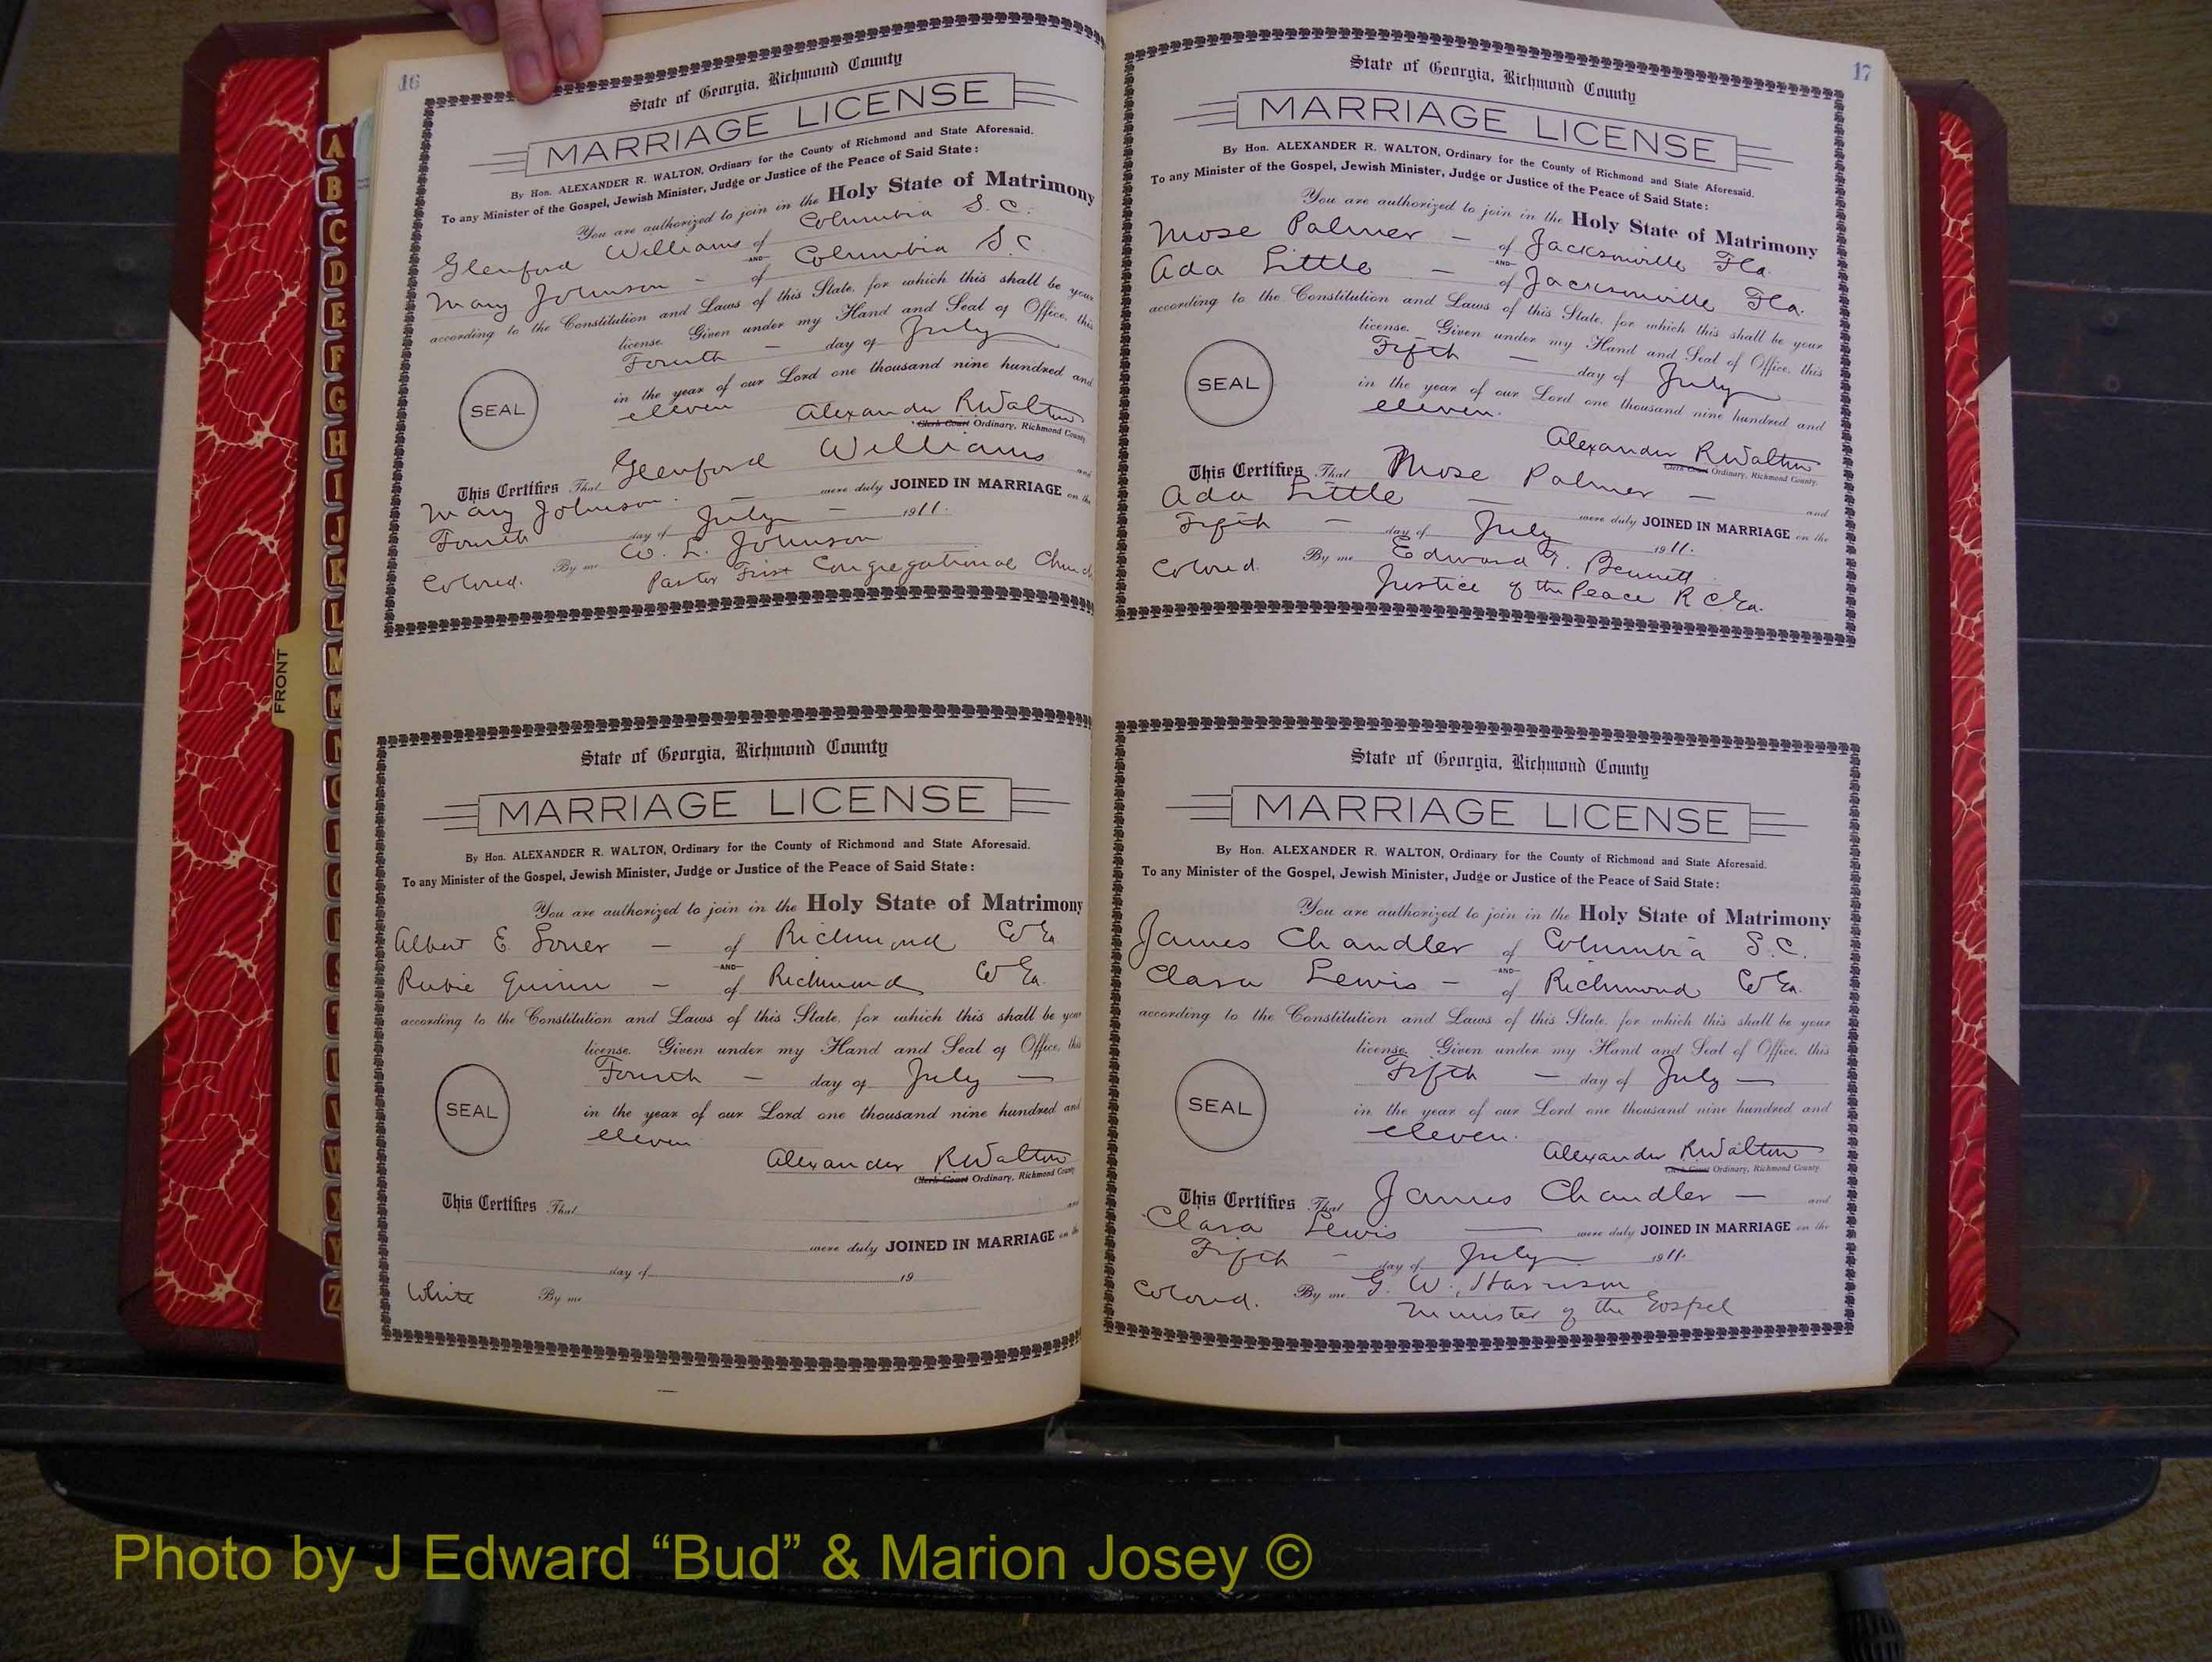 16
State of Georgia, Richmond County
MARRIAGE LICENSE
By Hon. ALEXANDER R. WALTON, Ordinary for the County of Richmond and State Aforesaid.
To any Minister of the Gospel, Jewish Minister, Judge or Justice of the Peace of Said State:
You are authorized to join in the Holy State of Matrimony
Glenford Williams of Columbia S.C.
AND
Mary Johnson - of Columbia S.C.
according to the Constitution and Laws of this State, for which this shall be your
license. Given under my Hand and Seal of Office, this
Fourth - day of July
in the year of our Lord one thousand nine hundred and
SEAL
eleven Alexander R Walton
Clerk Court Ordinary, Richmond County
This Certifies That Glenford Williams and
Mary Johnson. - were duly JOINED IN MARRIAGE on the
Fourth day of July - 1911.
By me W. L. Johnson
Colored. Pastor First Congregational Church
State of Georgia, Richmond County
MARRIAGE LICENSE
By Hon. ALEXANDER R. WALTON, Ordinary for the County of Richmond and State Aforesaid.
To any Minister of the Gospel, Jewish Minister, Judge or Justice of the Peace of Said State:
You are authorized to join in the Holy State of Matrimony
Albert E. - of Richmond Co Ga
AND
Rubie Quinn - of Richmond Co Ga.
according to the Constitution and Laws of this State, for which this shall be your
license. Given under my Hand and Seal of Office, this
Fourth - day of July -
SEAL
in the year of our Lord one thousand nine hundred and
eleven
Alexander R Walton
Clerk Court Ordinary, Richmond County
This Certifies That and
were duly JOINED IN MARRIAGE on the
day of 19
White By me
17
State of Georgia, Richmond County
MARRIAGE LICENSE
By Hon. ALEXANDER R. WALTON, Ordinary for the County of Richmond and State Aforesaid.
To any Minister of the Gospel, Jewish Minister, Judge or Justice of the Peace of Said State:
You are authorized to join in the Holy State of Matrimony
Mose Palmer - of Jacksonville Fla.
AND
Ada Little - of Jacksonville Fla.
according to the Constitution and Laws of this State, for which this shall be your
license. Given under my Hand and Seal of Office, this
Fifth - day of July
SEAL
in the year of our Lord one thousand nine hundred and
eleven.
Alexander R Walton
Clerk Court Ordinary, Richmond County.
This Certifies That Mose Palmer - and
Ada Little - were duly JOINED IN MARRIAGE on the
Fifth - day of July 1911.
Colored. By me Edward T. Bennett
Justice of the Peace R C Ga.
State of Georgia, Richmond County
MARRIAGE LICENSE
By Hon. ALEXANDER R. WALTON, Ordinary for the County of Richmond and State Aforesaid.
To any Minister of the Gospel, Jewish Minister, Judge or Justice of the Peace of Said State:
You are authorized to join in the Holy State of Matrimony
James Chandler of Columbia S.C.
AND
Clara Lewis - of Richmond Co Ga.
according to the Constitution and Laws of this State, for which this shall be your
license. Given under my Hand and Seal of Office, this
Fifth - day of July -
SEAL
in the year of our Lord one thousand nine hundred and
eleven.
Alexander R Walton
Clerk Court Ordinary, Richmond County
This Certifies That James Chandler - and
Clara Lewis - were duly JOINED IN MARRIAGE on the
Fifth - day of July 1911.
Colored. By me G. W. Harrison
Minister of the Gospel
FRONT
A
B
C
D
E
F
G
H
I
J
K
L
M
N
Z
Photo by J Edward “Bud” & Marion Josey ©